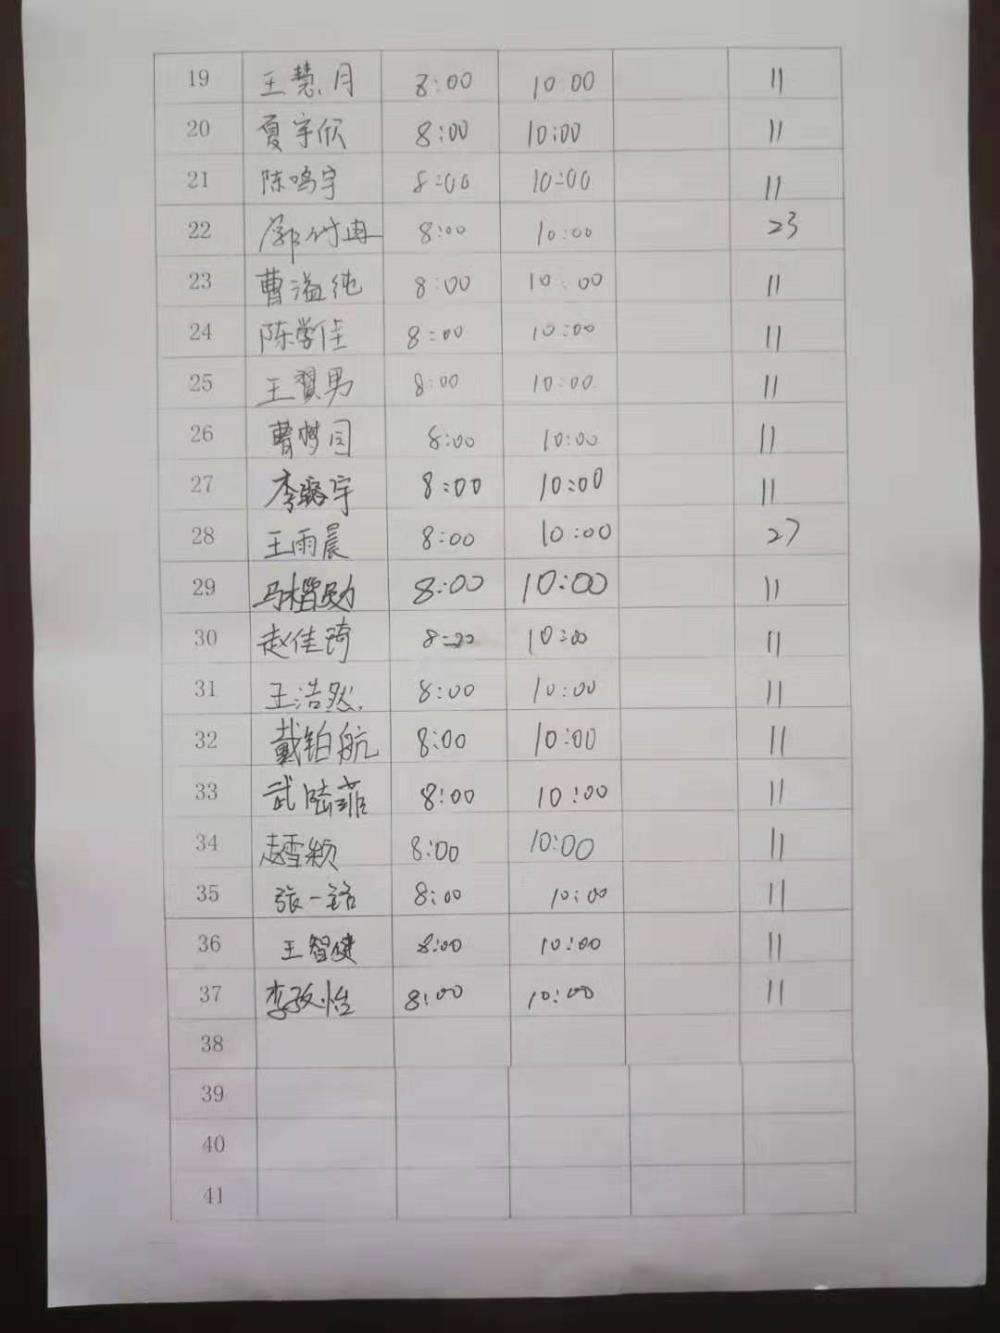 19 王慧月 8:00 10:00 11
20 夏宇欣 8:00 10:00 11
21 陈鸣宇 8:00 10:00 11
22 郭竹冉 8:00 10:00 23
23 曹溢纯 8:00 10:00 11
24 陈学佳 8:00 10:00 11
25 王翼男 8:00 10:00 11
26 曹梦园 8:00 10:00 11
27 李璐宇 8:00 10:00 11
28 王雨晨 8:00 10:00 27
29 8:00 10:00 11
30 赵佳琦 8:00 10:00 11
31 王浩然 8:00 10:00 11
32 戴铂航 8:00 10:00 11
33 武陆菲 8:00 10:00 11
34 赵雪颖 8:00 10:00 11
35 张一铭 8:00 10:00 11
36 王智健 8:00 10:00 11
37 8:00 10:00 11
38
39
40
41